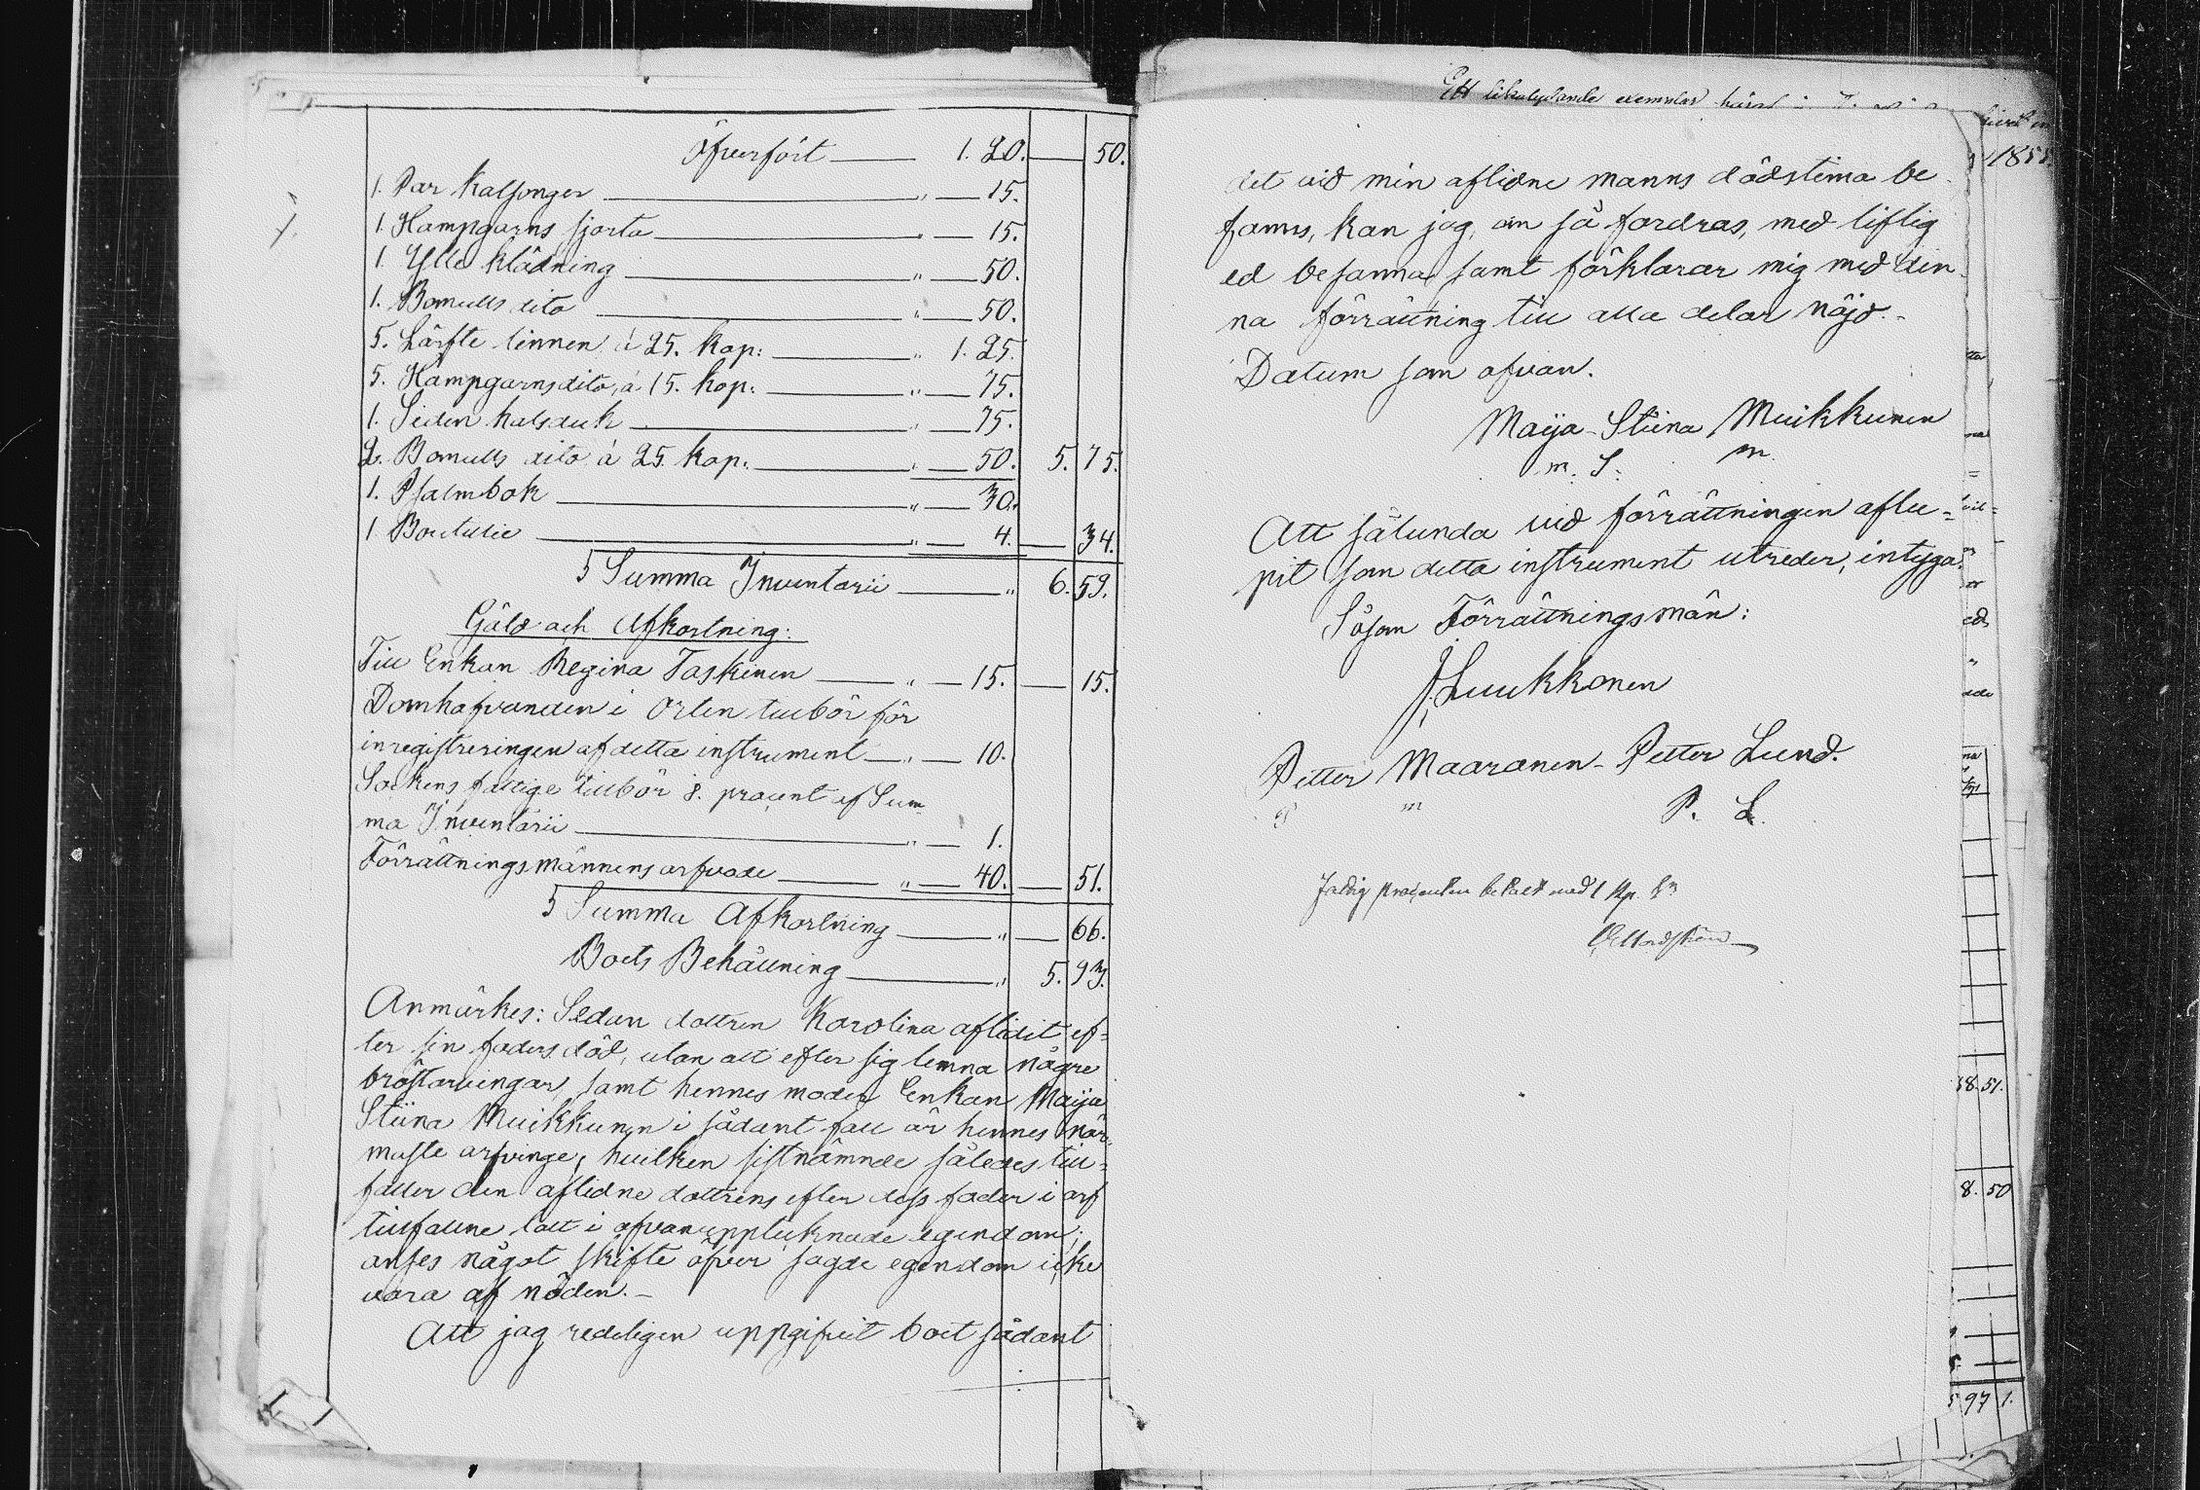 Öfverfört — 1. 20. — 50.
1. Par Kalsonger — " — 15.
1. Hampgarns sjorta — " — 15.
1. Ylle klädning — " — 50.
1. Bomulls dito — " — 50.
5. Lärfts linnen, á 25. kop: — " 1. 25.
5. Hampgarns dito, á 15. kop: — " — 75.
1. Siden halsduk — " — 75.
2. Bomulls dito á 25. kop: — " — 50. 5. 75.
1. Psalmbok — " — 30.
1. Boutillie — " — 4. — 34.
S Summa Inventarii — " 6. 59.
Gäld och Afkortning:
Till Enkan Regina Taskinen — " — 15. — 15.
Domhafvanden i Orten tillbör för
inregistreringen af detta instrument — " — 10.
Sockens fattige tillbör 8. procent af Sum
ma Inventarii — " — 1.
Förrättningsmännens arfvode — " — 40. — 51.
S Summa Afkortning — " — 66.
Boets Behållning — " 5. 93.
Anmärkes: Sedan dottren Karolina aflidit ef=
ter sin faders död, utan att efter sig lemna några
bröstarvingar, samt hennes moder Enkan Maija
Stiina Muikkunen i sådant fall är hennes när
maste arfvinge, hvilken sistnämnde således till=
faller den aflidne dottrens efter dess fader i arf
tillfallne lott i ofvanupptecknade egendom;
anses något skifte öfver sagde egendom icke
vara af nöden. –
Att jag redeligen uppgifvit boet sådant
Ett likalydande exemplar
det vid min aflidne manns dödstima be
fanns, kan jag, om så fordras, med liflig
ed besanna, samt förklarar mig med den
na förrättning till alla delar nöjd. –
Datum som ofvan.
Maija Stiina Muikkunen
m. S: m.
Att sålunda vid förrättningen aflu=
pit som detta instrument utreder, intyga.
Såsom Förrättningsmän:
J. Luukkonen
Petter Maaranen – Petter Lund.
P m P. L.
Fattig procenten betalt med 1 Kp. Sr
185
38. 51.
8. 50
5 97 1.